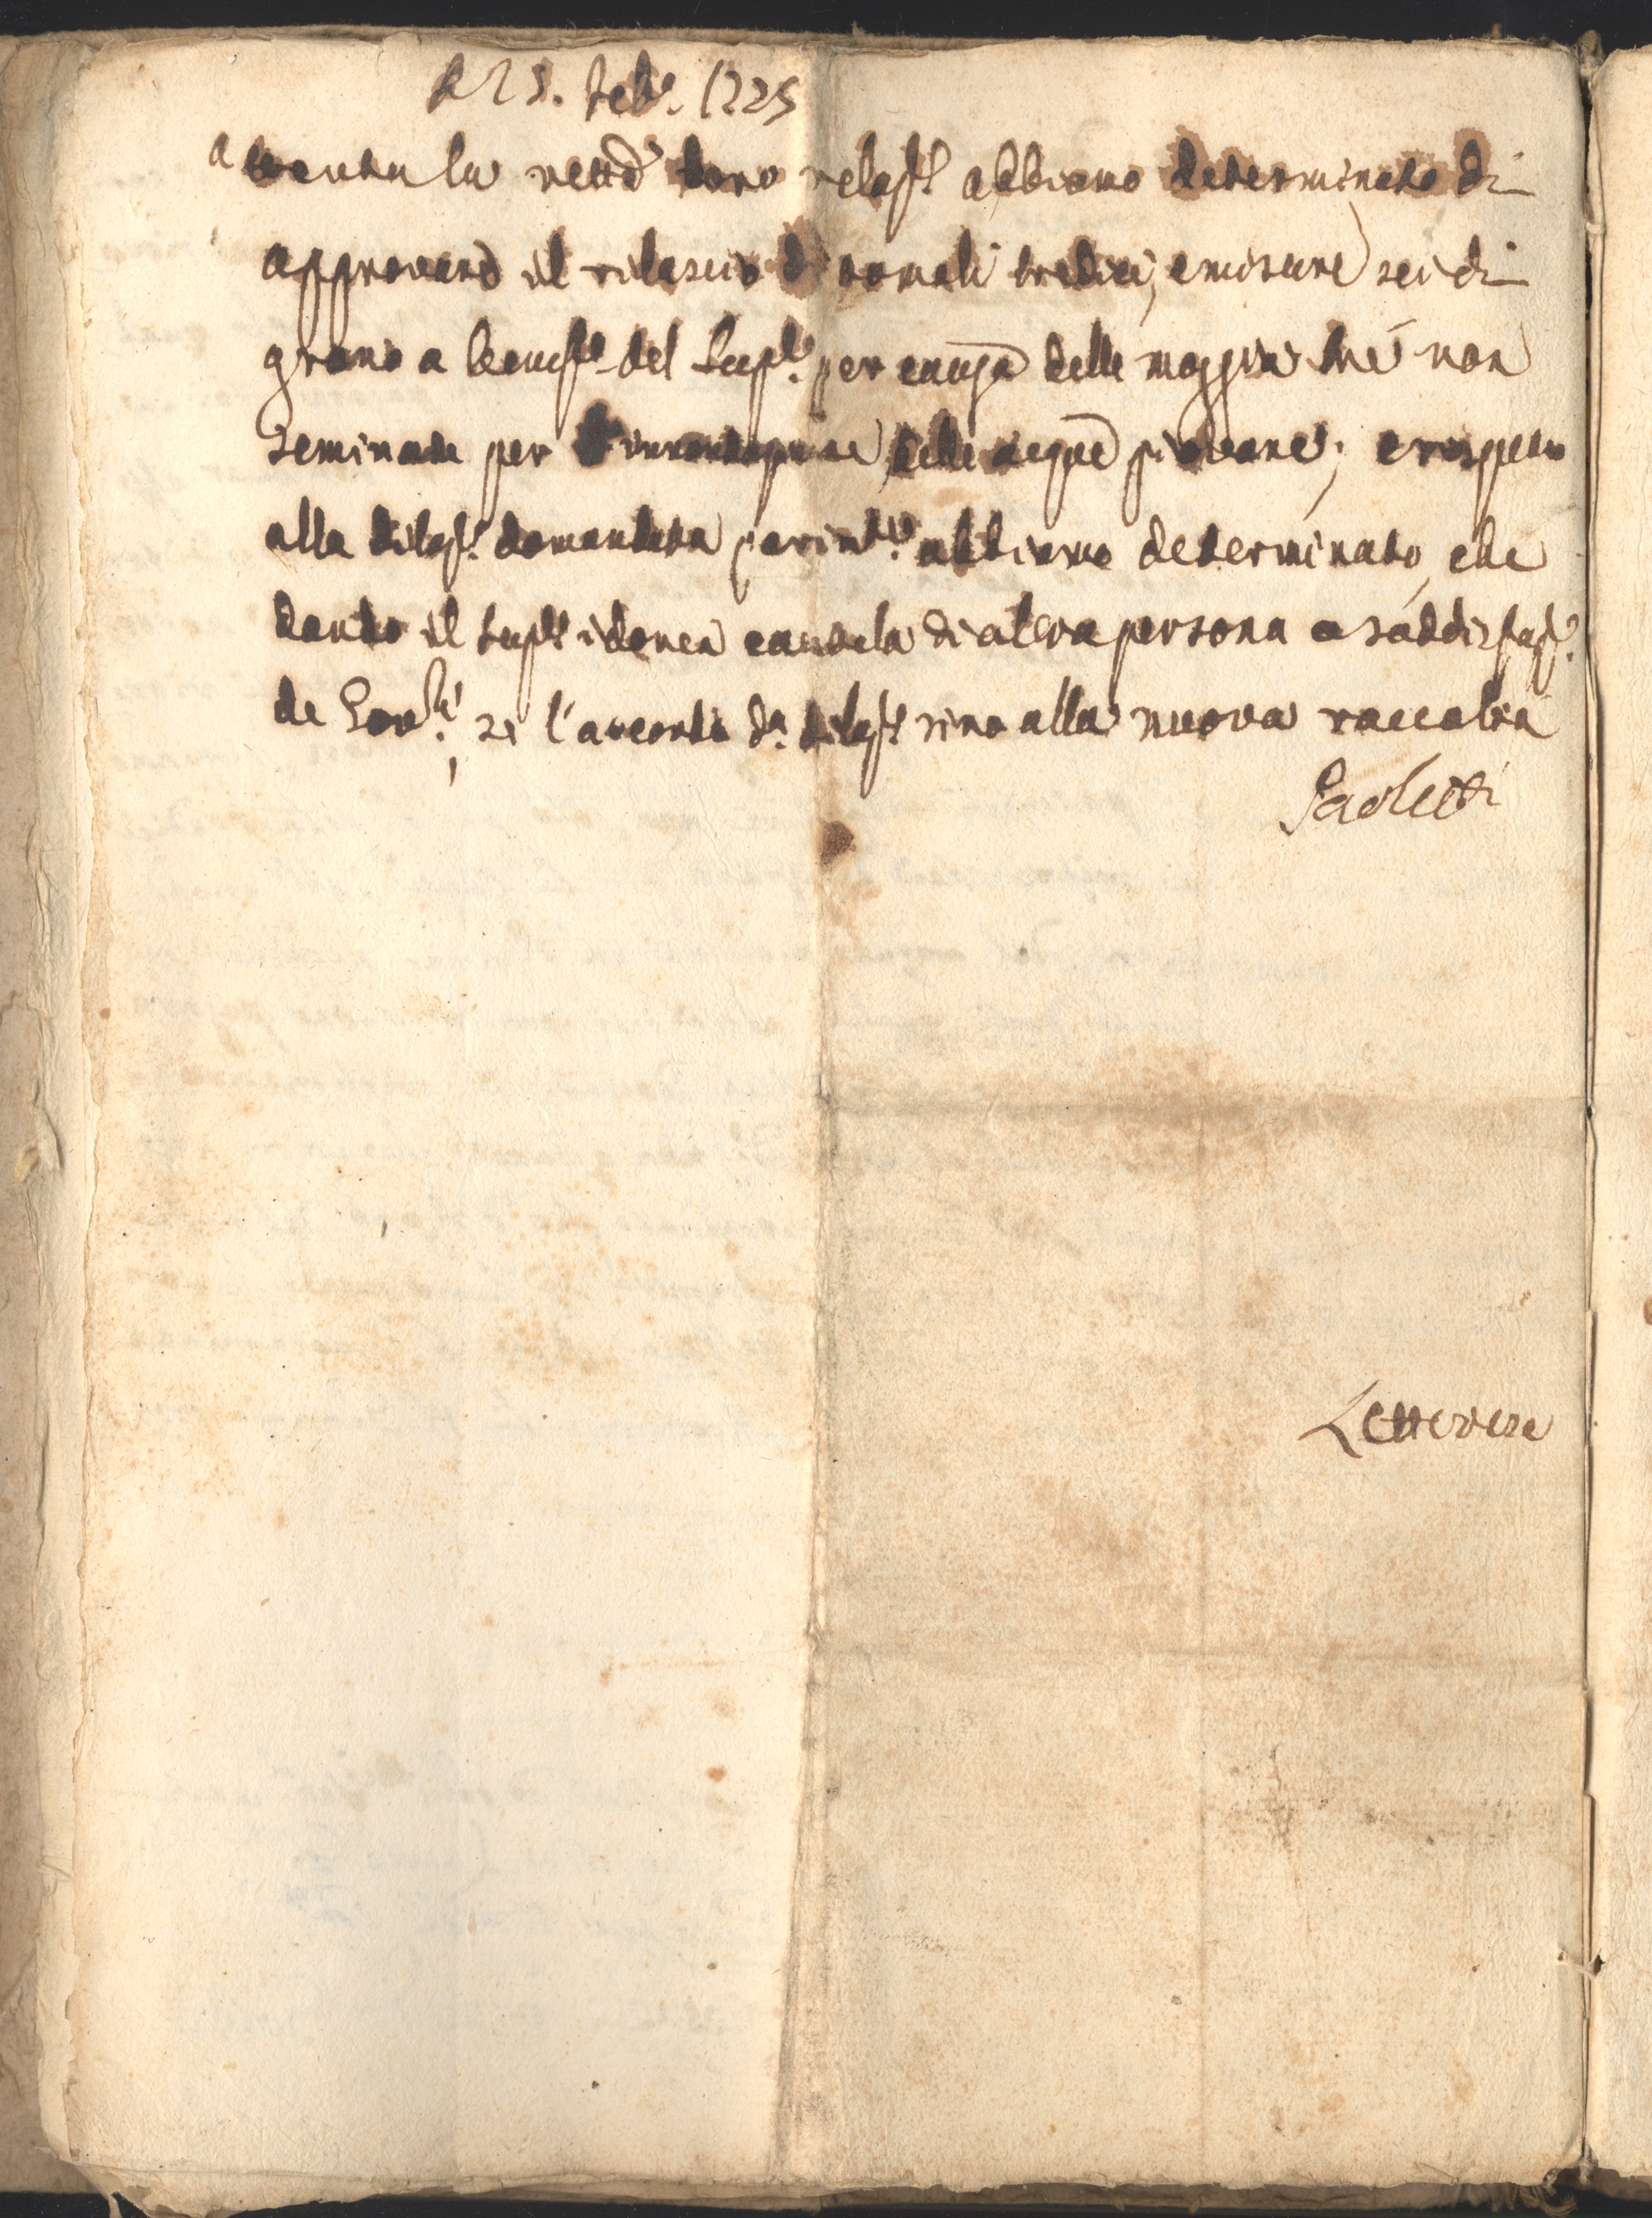 A 25. Feb.o 1725
attenta la retta loro relaz.e abbiamo determinato di
approvare il rilascio di tomali tredici, e misure sei di
grano a benefi.o del Sup.te per causa delle moggia tré non
seminate per delle acque piovane; e rispetto
alla dilaz.e domandata parim.te abbiamo determinato, che
dando il Sup.te idonea cautela di altra persona a saddisfaz.e
de Gov.ri, si l'accordi d.a dilaz.e sino alla nuova raccolta
Paoletti
Lettevese